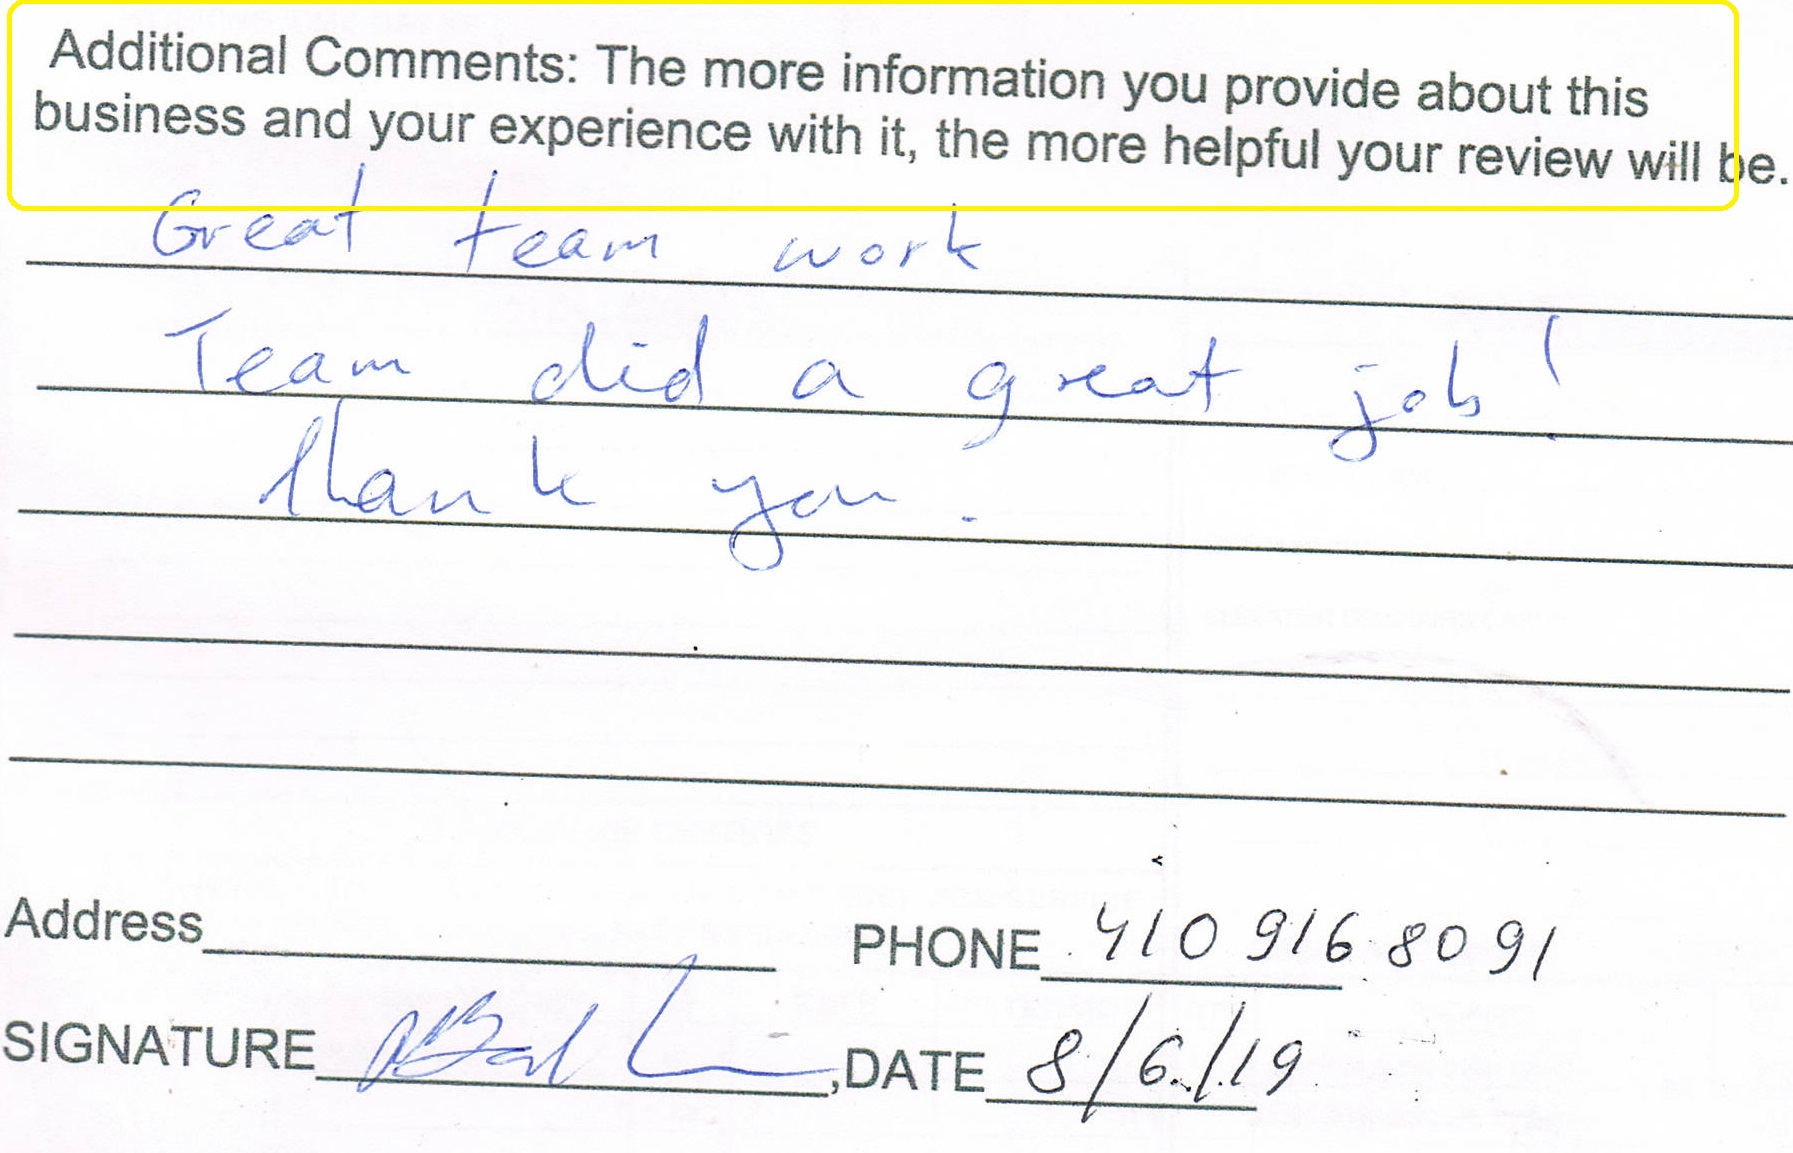 Additional Comments: The more information you provide about this
business and your experience with it, the more helpful your review will be.
Great team work
Team did a great job!
Thank you.
Address PHONE 410 916 8091
SIGNATURE ,DATE 8/6/19